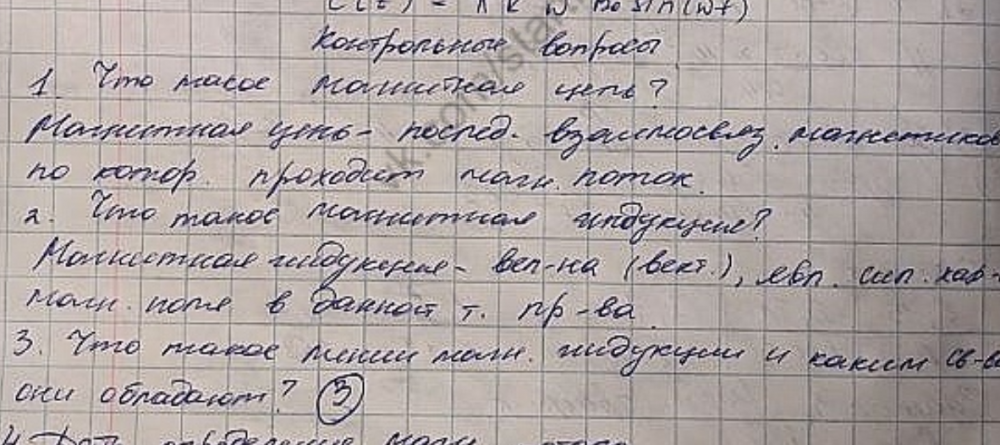 Контрольные вопросы
1. Что такое магнитная цепь?
Магнитная цепь - послед. взаимосвяз. магнетиков
по котор. проходит магн. поток.
2. Что такое магнитная индукция?
Магнитная индукция - вел-на (вект.), явл. сил. хар-
магн. поля в данной т. пр-ва.
3. Что такое линии магн. индукции и каким св-в
они обладают? 3
4. Дать определение магн.